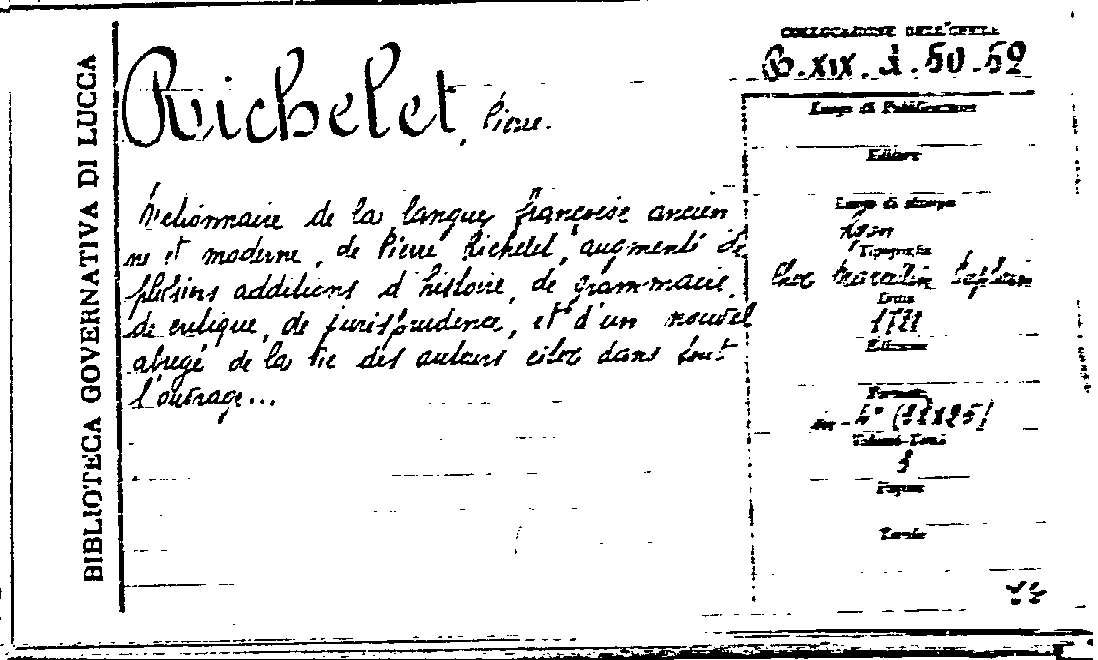 BIBLIOTECA GOVERNATIVA DI LUCCA
Richelet, Pierre.
Dictionnaire de la langue françoise ancien
ne et moderne, de Pierre Richelet, augmenté de
plusiers additions d'histoire, de grammaire,
de critique, de jurisprudence, et d'un nouvel
abregé de la vie des auteurs citez dans tout
l'ouvrage...
COLLOCAZIONE DELL'OPERA
B.XIX.d.50.52
Luogo di Pubblicazione
Editore
Luogo di stampa
Tipografia
Chez Marcellin
Data
Edizione
Formato
in-4°
Volumi-Tomi
3
Pagine
Tavole